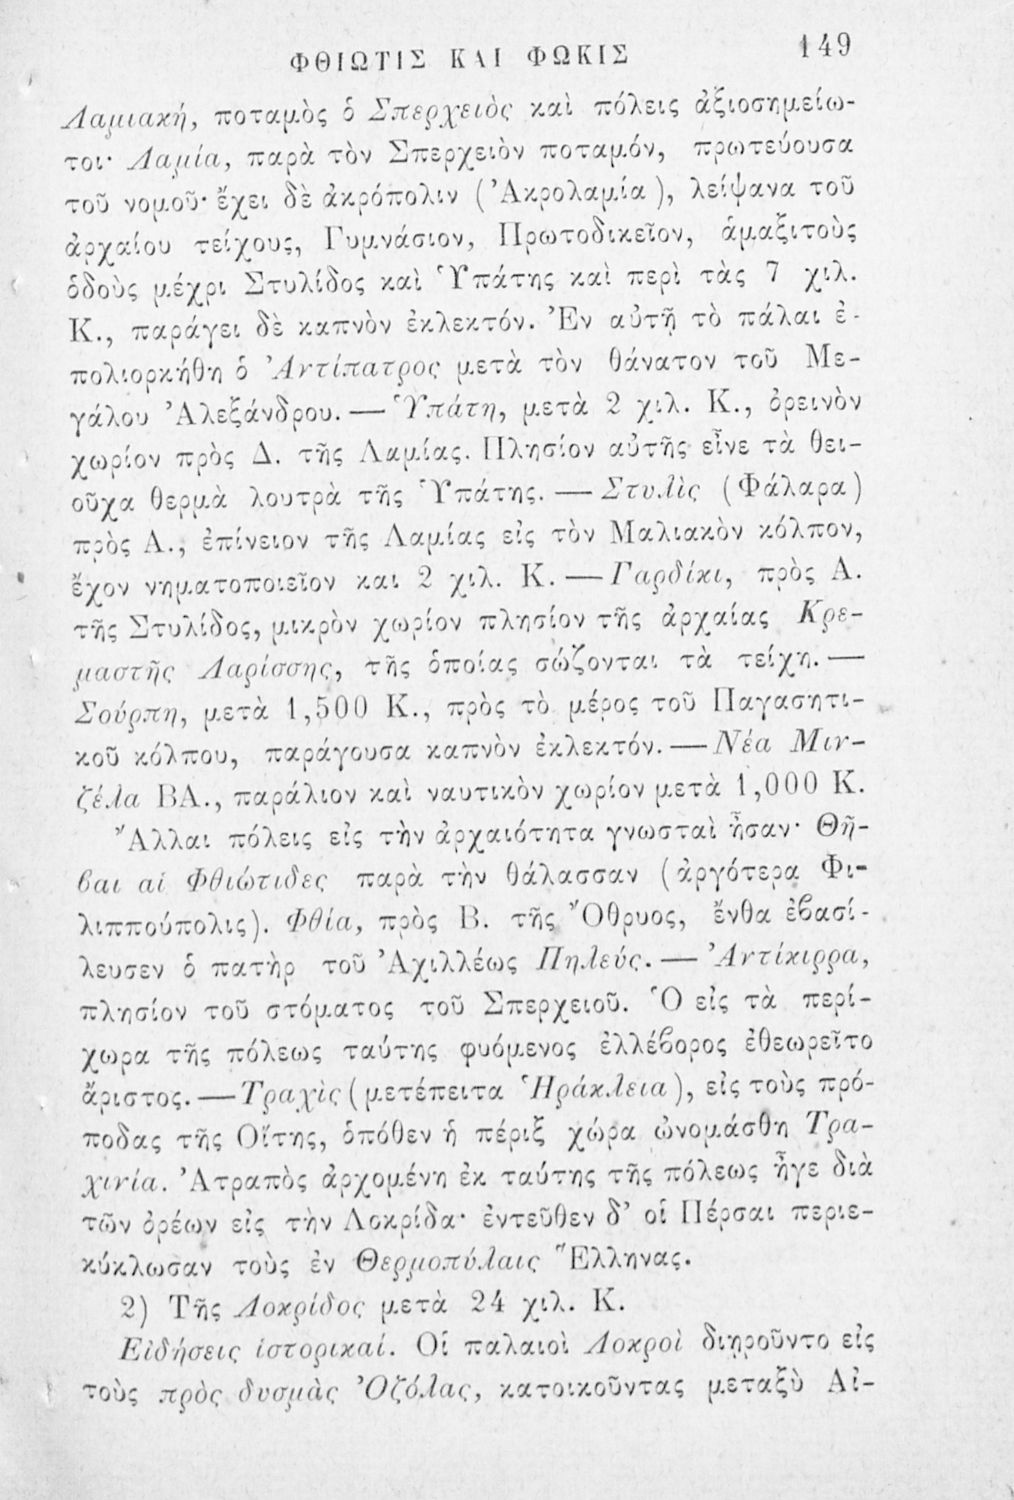 ΦΘΙΩΤΙΣ ΚΑΙ ΦΩΚΙΣ 149
Λαμιακή, ποταμὸς ὁ Σπερχειὸς καὶ πόλεις ἀξιοσημείω-
τοι· Λαμία, παρὰ τὸν Σπερχειὸν ποταμόν, πρωτεύουσα
τοῦ νομοῦ· ἔχει δὲ ἀκρόπολιν (Ἀκρολαμία), λείψανα τοῦ
ἀρχαίου τείχους, Γυμνάσιον, Πρωτοδικεῖον, ἁμαξιτοὺς
ὁδοὺς μέχρι Στυλίδος καὶ Ὑπάτης καὶ περὶ τὰς 7 χιλ.
Κ., παράγει δὲ καπνὸν ἐκλεκτόν. Ἐν αὐτῇ τὸ πάλαι ἐ-
πολιορκήθη ὁ Ἀντίπατρος μετὰ τὸν θάνατον τοῦ Με-
γάλου Ἀλεξάνδρου. — Ὑπάτη, μετὰ 2 χιλ. Κ., ὀρεινὸν
χωρίον πρὸς Δ. τῆς Λαμίας. Πλησίον αὐτῆς εἶνε τὰ θει-
οῦχα θερμὰ λουτρὰ τῆς Ὑπάτης. — Στυλὶς (Φάλαρα)
πρὸς Α., ἐπίνειον τῆς Λαμίας εἰς τὸν Μαλιακὸν κόλπον,
ἔχον νηματοποιεῖον και 2 χιλ. Κ. — Γαρδίκι, πρὸς Α.
τῆς Στυλίδος, μικρὸν χωρίον πλησίον τῆς ἀρχαίας Κρε-
μαστῆς Λαρίσσης, τῆς ὁποίας σώζονται τὰ τείχη. —
Σούρπη, μετὰ 1,500 Κ., πρὸς τὸ μέρος τοῦ Παγασητι-
κοῦ κόλπου, παράγουσα καπνὸν ἐκλεκτόν. — Νέα Μιν-
ζέλα ΒΑ., παράλιον καὶ ναυτικὸν χωρίον μετὰ 1,000 Κ.
Ἄλλαι πόλεις εἰς τὴν ἀρχαιότητα γνωσταὶ ἦσαν· Θῆ-
βαι αἱ Φθιώτιδες παρὰ τὴν θάλασσαν (ἀργότερα Φι-
λιππούπολις). Φθία, πρὸς Β. τῆς Ὄθρυος, ἔνθα ἐβασί-
λευσεν ὁ πατὴρ τοῦ Ἀχιλλέως Πηλεύς. — Ἀντίκιρρα,
πλησίον τοῦ στόματος τοῦ Σπερχειοῦ. Ὁ εἰς τὰ περί-
χωρα τῆς πόλεως ταύτης φυόμενος ἐλλέβορος ἐθεωρεῖτο
ἄριστος. — Τραχὶς (μετέπειτα Ἡράκλεια), εἰς τοὺς πρό-
ποδας τῆς Οἴτης, ὁπόθεν ἡ πέριξ χώρα ὠνομάσθη Τρα-
χινία. Ἀτραπὸς ἀρχομένη ἐκ ταύτης τῆς πόλεως ἦγε διὰ
τῶν ὀρέων εἰς τὴν Λοκρίδα· ἐντεῦθεν δ' οἱ Πέρσαι περιε-
κύκλωσαν τοὺς ἐν Θερμοπύλαις Ἕλληνας.
2) Τῆς Λοκρίδος μετὰ 24 χιλ. Κ.
Εἰδήσεις ἱστορικαί. Οἱ παλαιοὶ Λοκροὶ διῃροῦντο εἰς
τοὺς πρὸς δυσμὰς Ὀζόλας, κατοικοῦντας μεταξὺ Αἰ-